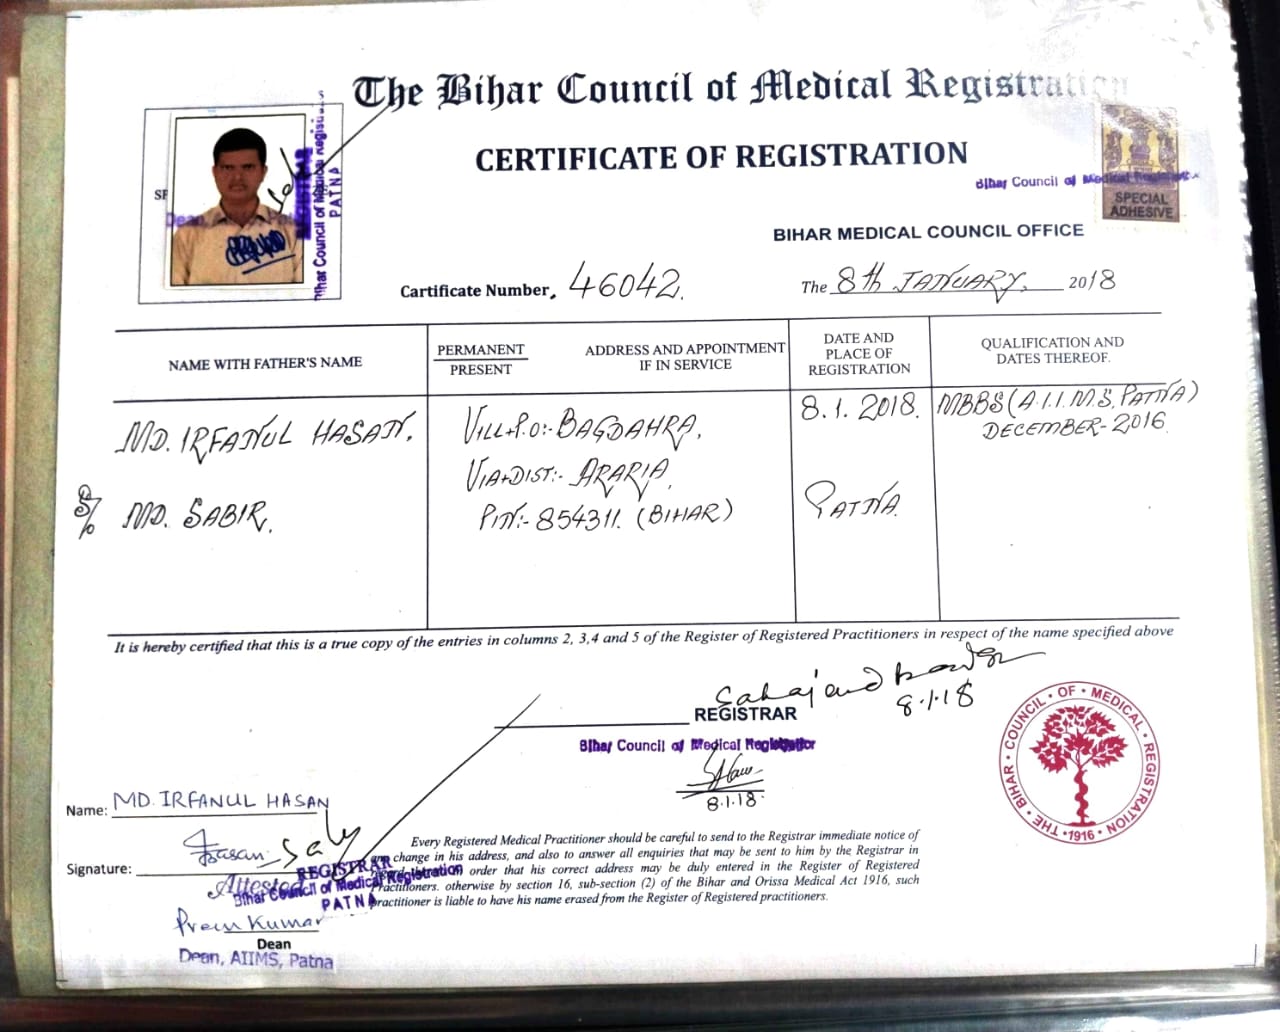 The Bihar Council of Medical Registration
CERTIFICATE OF REGISTRATION
SPECIAL
ADHESIVE
Bihar Council of Medical Registration
REGISTRAR
Bihar Council of Medical Registration
PATNA
SP
Dean,
BIHAR MEDICAL COUNCIL OFFICE
Certificate Number. 46042.
The 8th JANUARY. 2018
NAME WITH FATHER'S NAME
PERMANENT
PRESENT
ADDRESS AND APPOINTMENT
IF IN SERVICE
DATE AND
PLACE OF
REGISTRATION
QUALIFICATION AND
DATES THEREOF.
MD. IRFANUL HASAN.
S/o MD. SABIR.
VILL+P.O:-BAGDAHRA,
VIA+DIST:- ARARIA,
PIN:- 854311. (BIHAR)
8.1.2018.
PATNA
MBBS (A.I.I.M.S, PATNA)
DECEMBER-2016.
It is hereby certified that this is a true copy of the entries in columns 2, 3,4 and 5 of the Register of Registered Practitioners in respect of the name specified above
8.1.18
REGISTRAR
Bihar Council of Medical Registration
8.1.18.
THE • BIHAR • COUNCIL • OF • MEDICAL • REGISTRATION
•1916•
Name: MD. IRFANUL HASAN
Signature: Hasan
Attested
REGISTRAR
Bihar Council of Medical Registration
PATNA
Prem Kumar
Dean
Dean, AIIMS, Patna
Every Registered Medical Practitioner should be careful to send to the Registrar immediate notice of
change in his address, and also to answer all enquiries that may be sent to him by the Registrar in
order that his correct address may be duly entered in the Register of Registered
Practitioners. otherwise by section 16, sub-section (2) of the Bihar and Orissa Medical Act 1916, such
practitioner is liable to have his name erased from the Register of Registered practitioners.